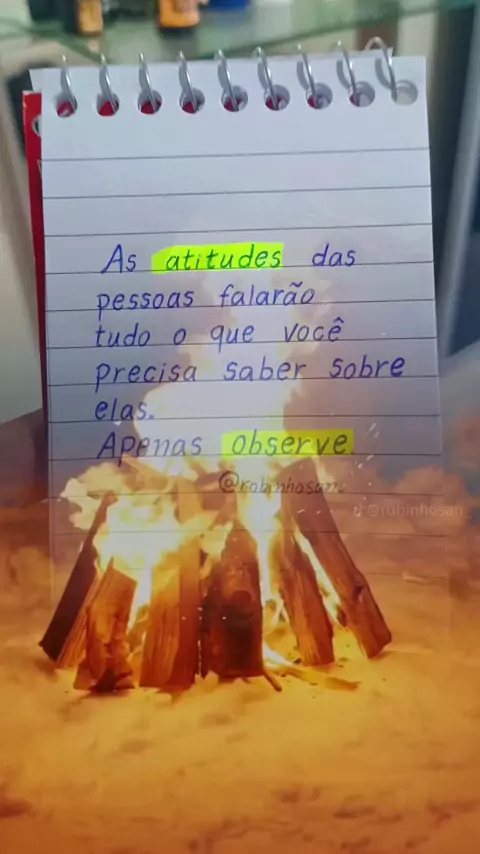 As atitudes das
pessoas falarão
tudo o que você
precisa saber sobre
elas.
Apenas observe.
@robinhosan
@robinhosan